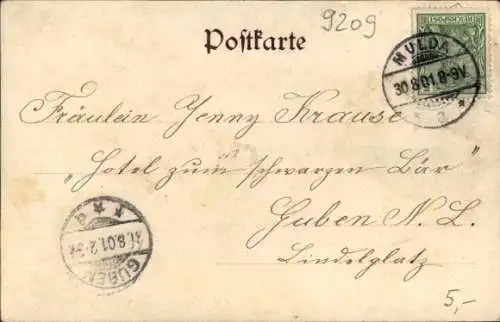 9209
Postkarte
MULDA
30.8.01.8-9V.
a
Fräulein Jenny Krause
„Hotel zum schwarzen Bär"
Guben N. L.
Lindelplatz
GUBEN
31.8.01.2-3N
a
5,-